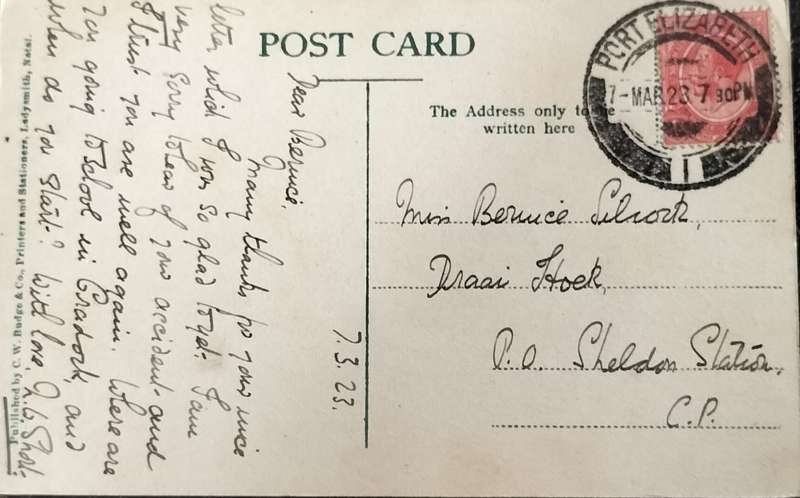 POST CARD
The Address only to be
written here
PORT ELIZABETH
7-MAR 23-7 30PM
1
Miss Bernice Silcock,
Draai Hoek,
P.O. Sheldon Station,
C.P.
7.3.23.
Dear Bernice,
Many thanks for your nice
letter, which I was so glad to get. I am
very sorry to hear of your accident and
I trust you are well again. Where are
You going to school in Cradock, and
when do you start? With love,
Published by C. W. Budge & Co., Printers and Stationers, Ladysmith, Natal.